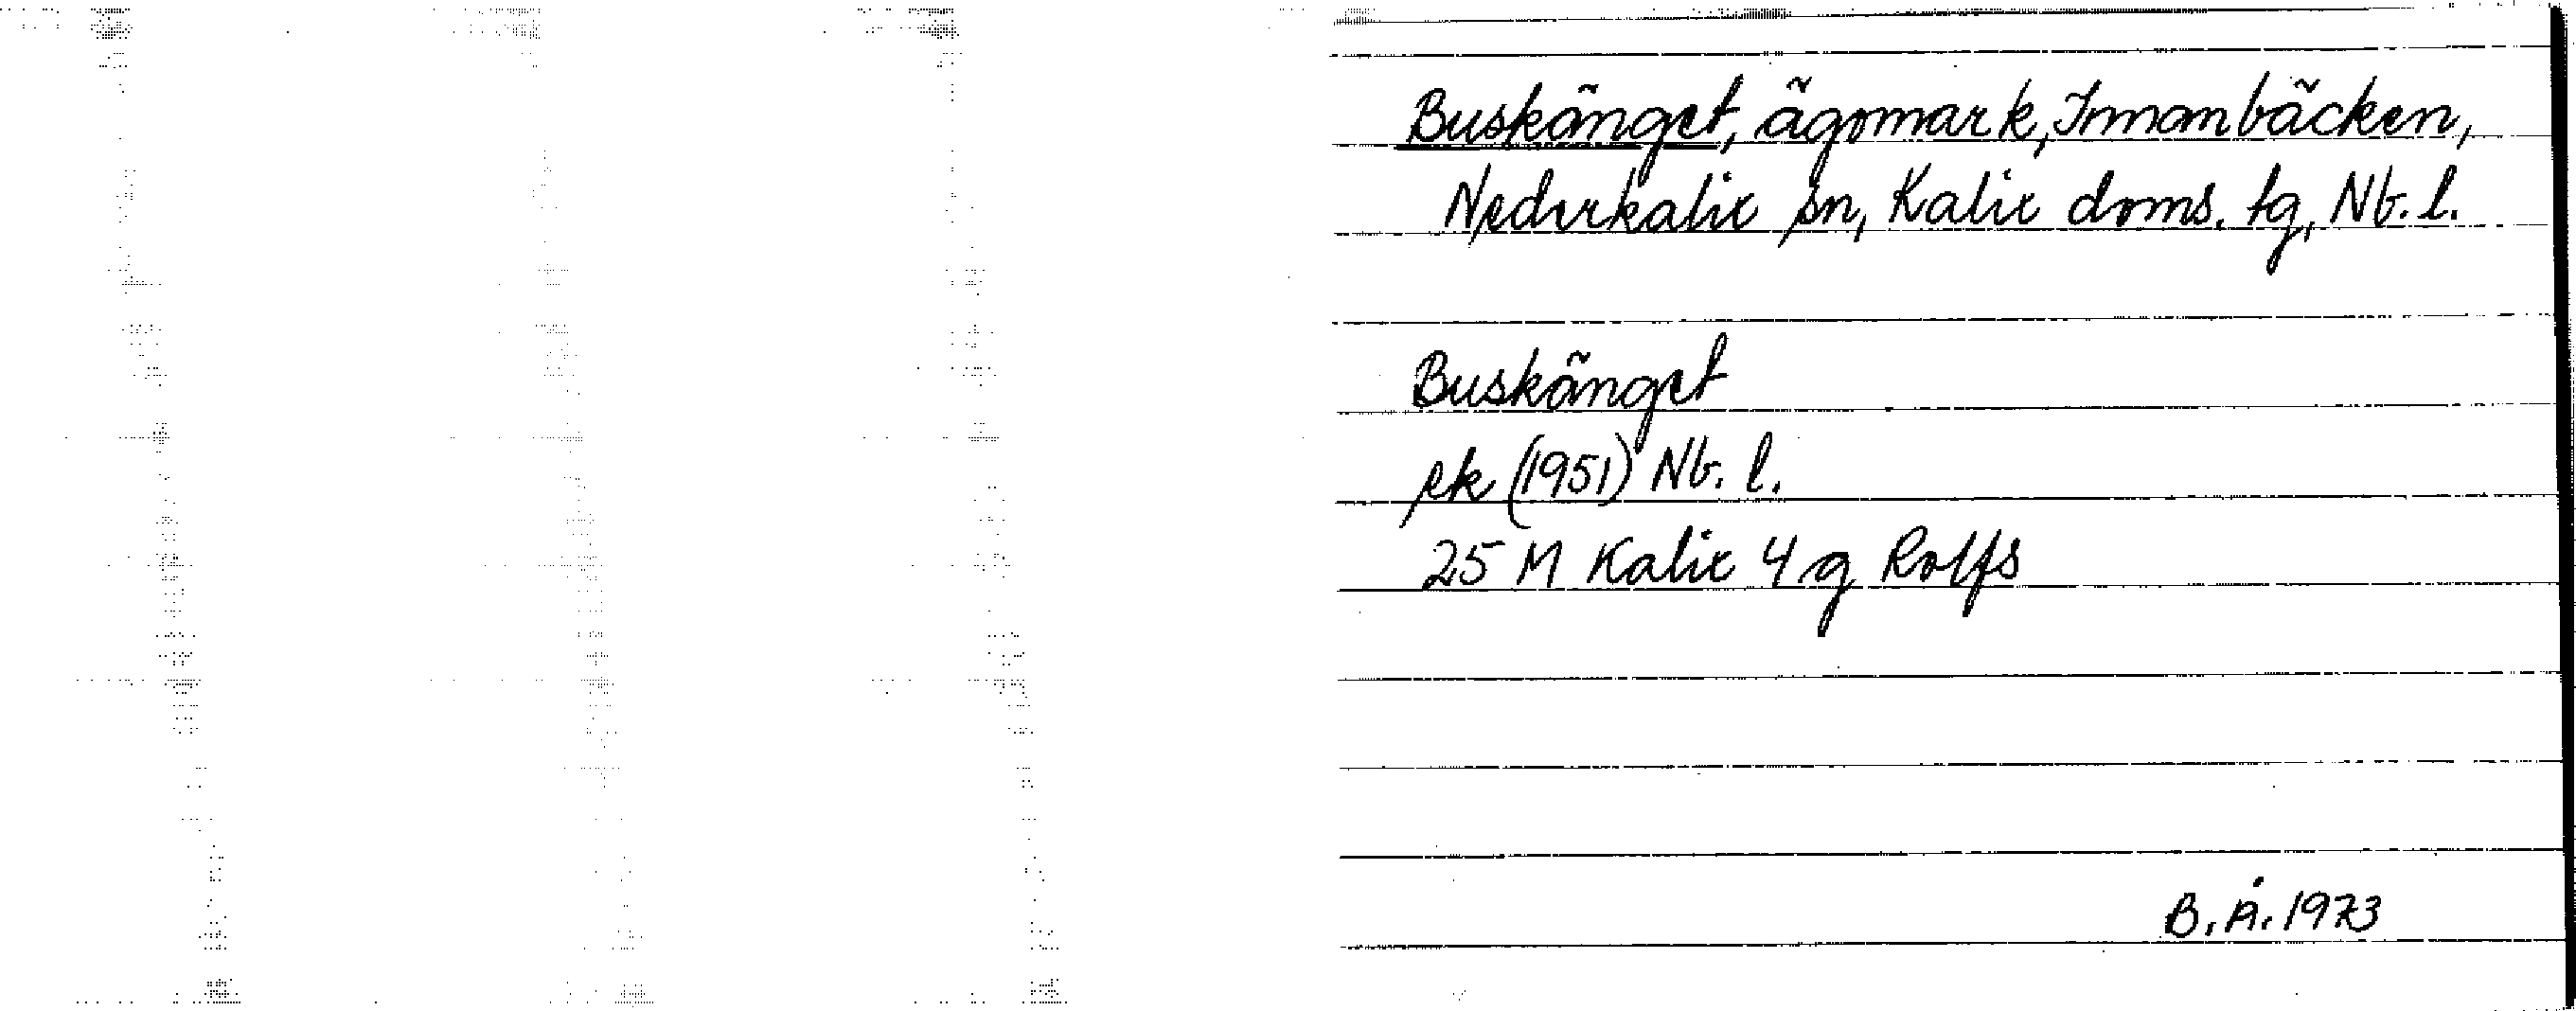 Buskänget, ägomark, Innanbäcken,
Nederkalix sn, Kalix doms. tg, Nb. l.
Buskänget
ek (1951) Nb. l.
25 M Kalix 4 g Rolfs
B.Å. 1973